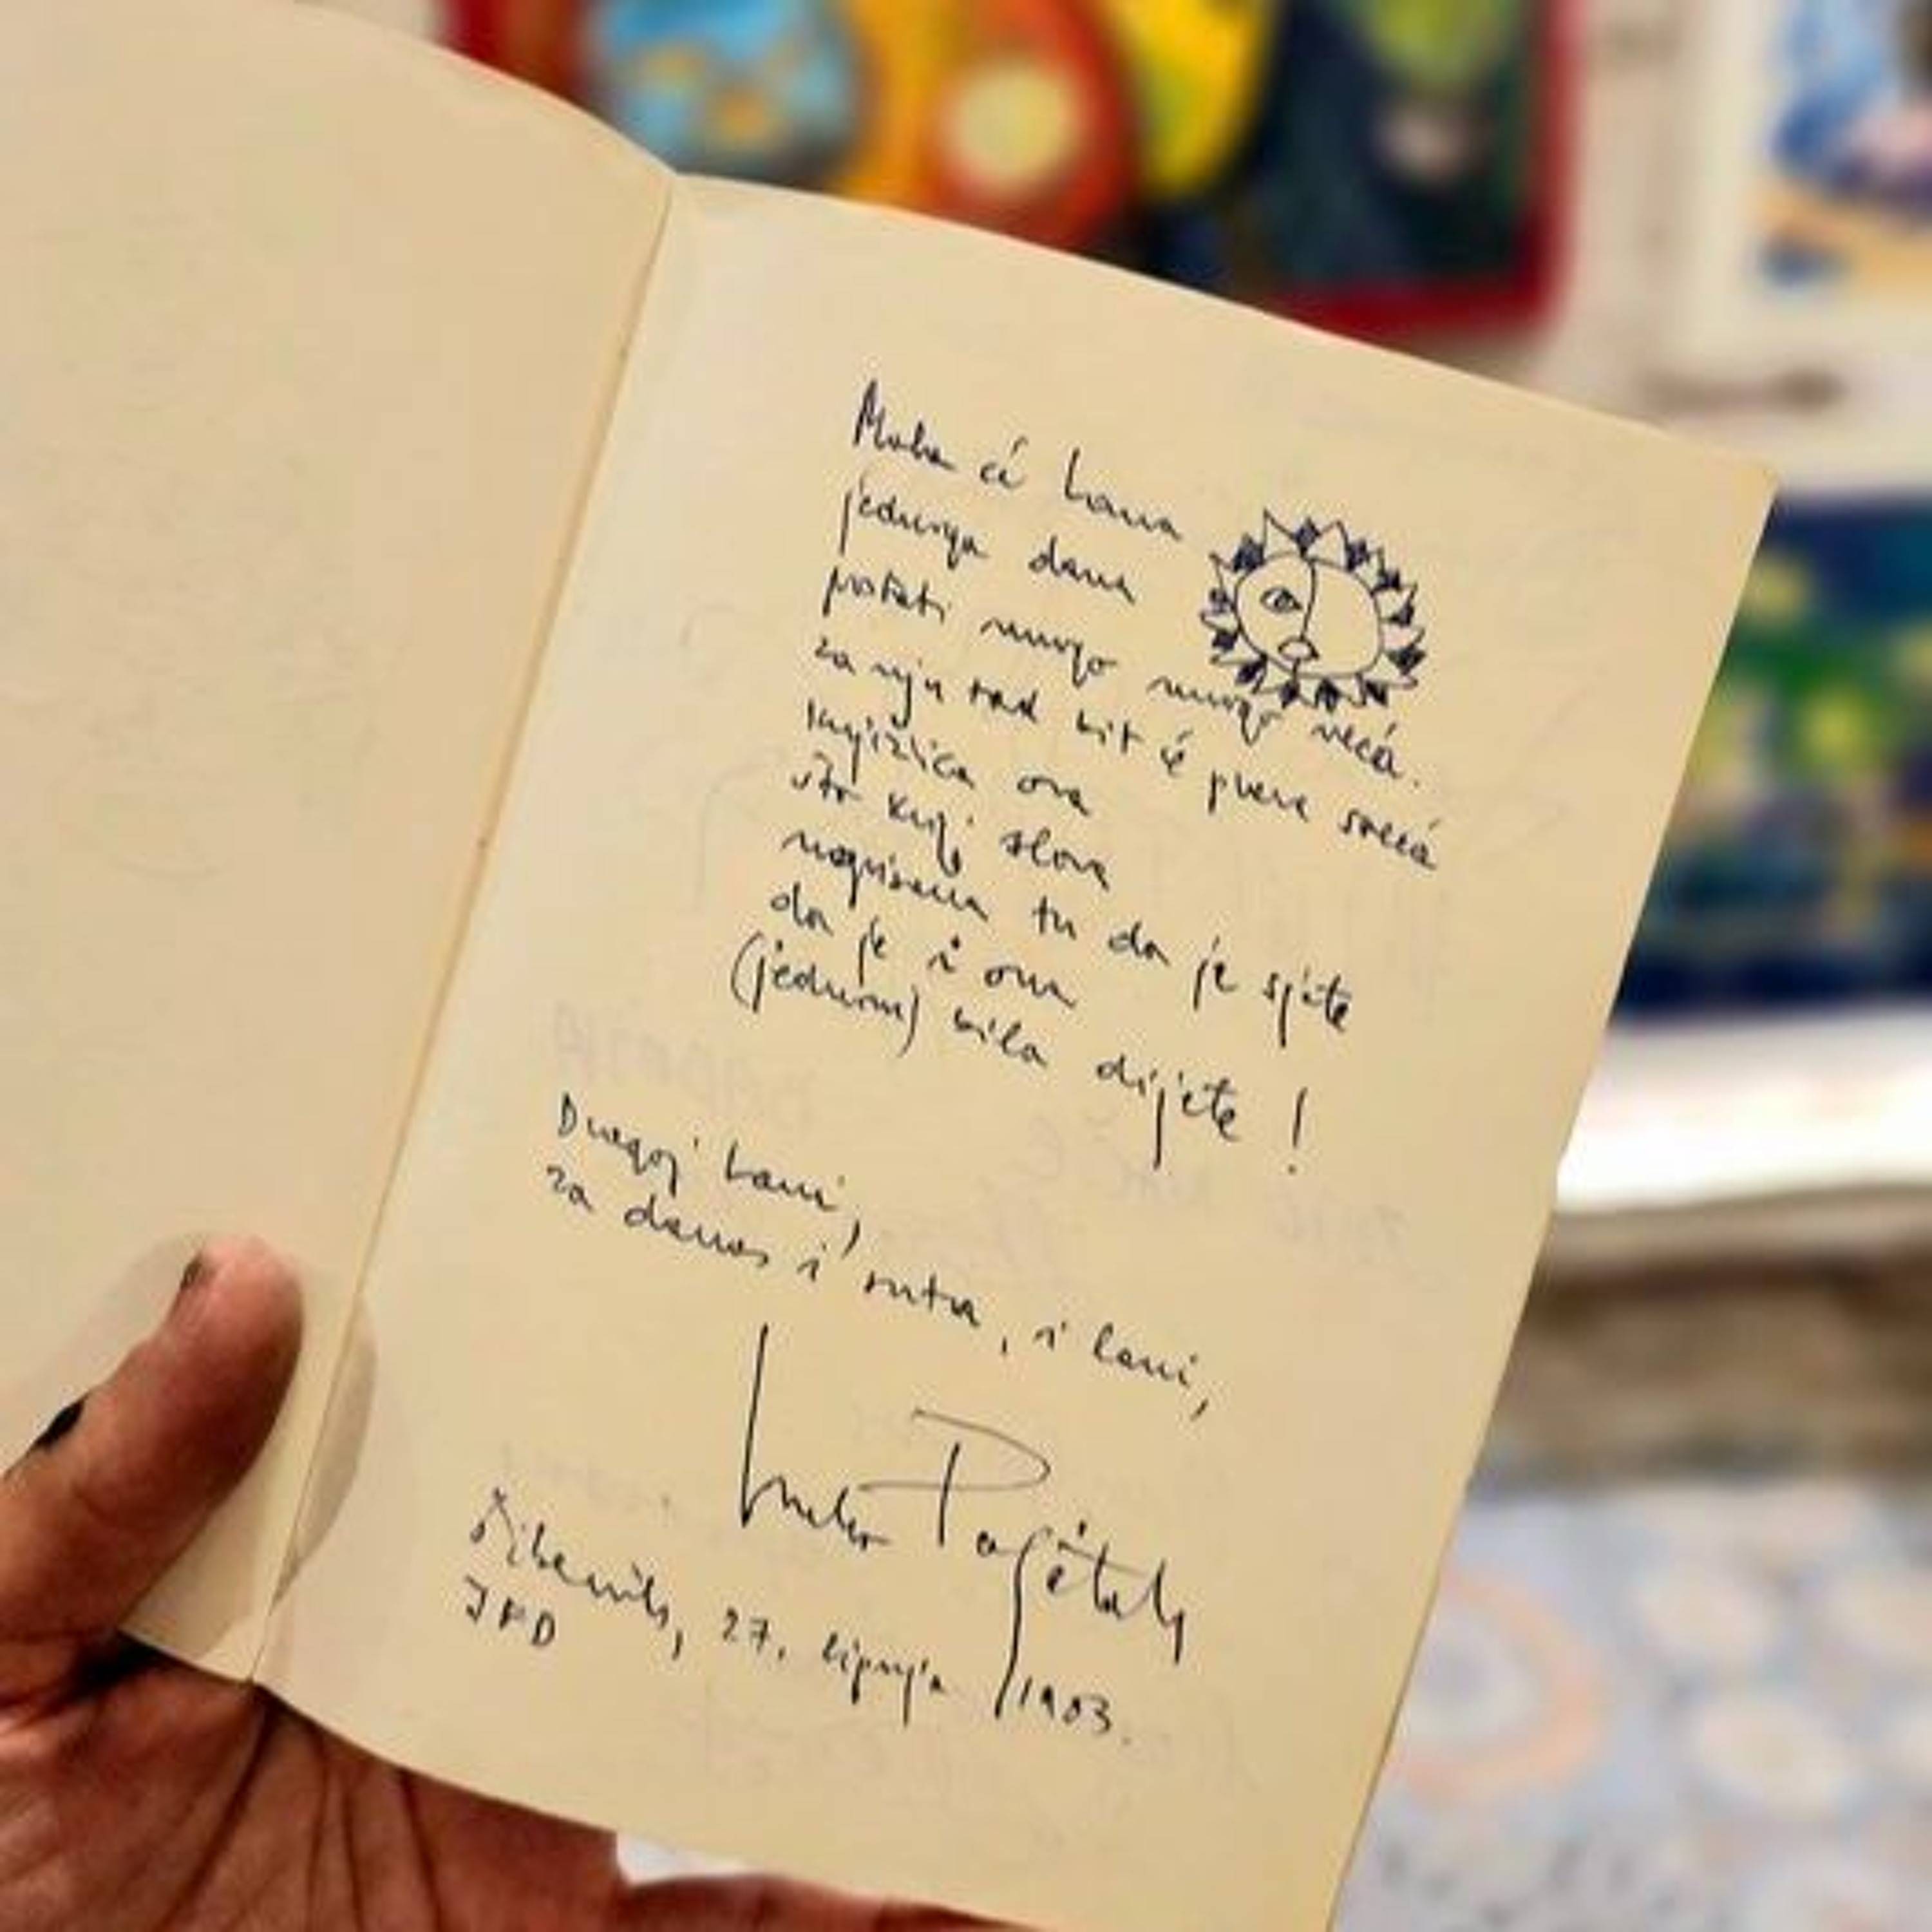 Mala će Lana
jednoga dana
postati mnogo mnogo veća.
za nju tad bit će prava sreća
knjižica ova
što kroz slova
napisana tu da je sjete
da je i ona
(jednom) bila dijete !
Dragoj Lani,
za danas i sutra, i lani,
Luko Paljetak
Šibenik, 27. lipnja 1983.
JPD